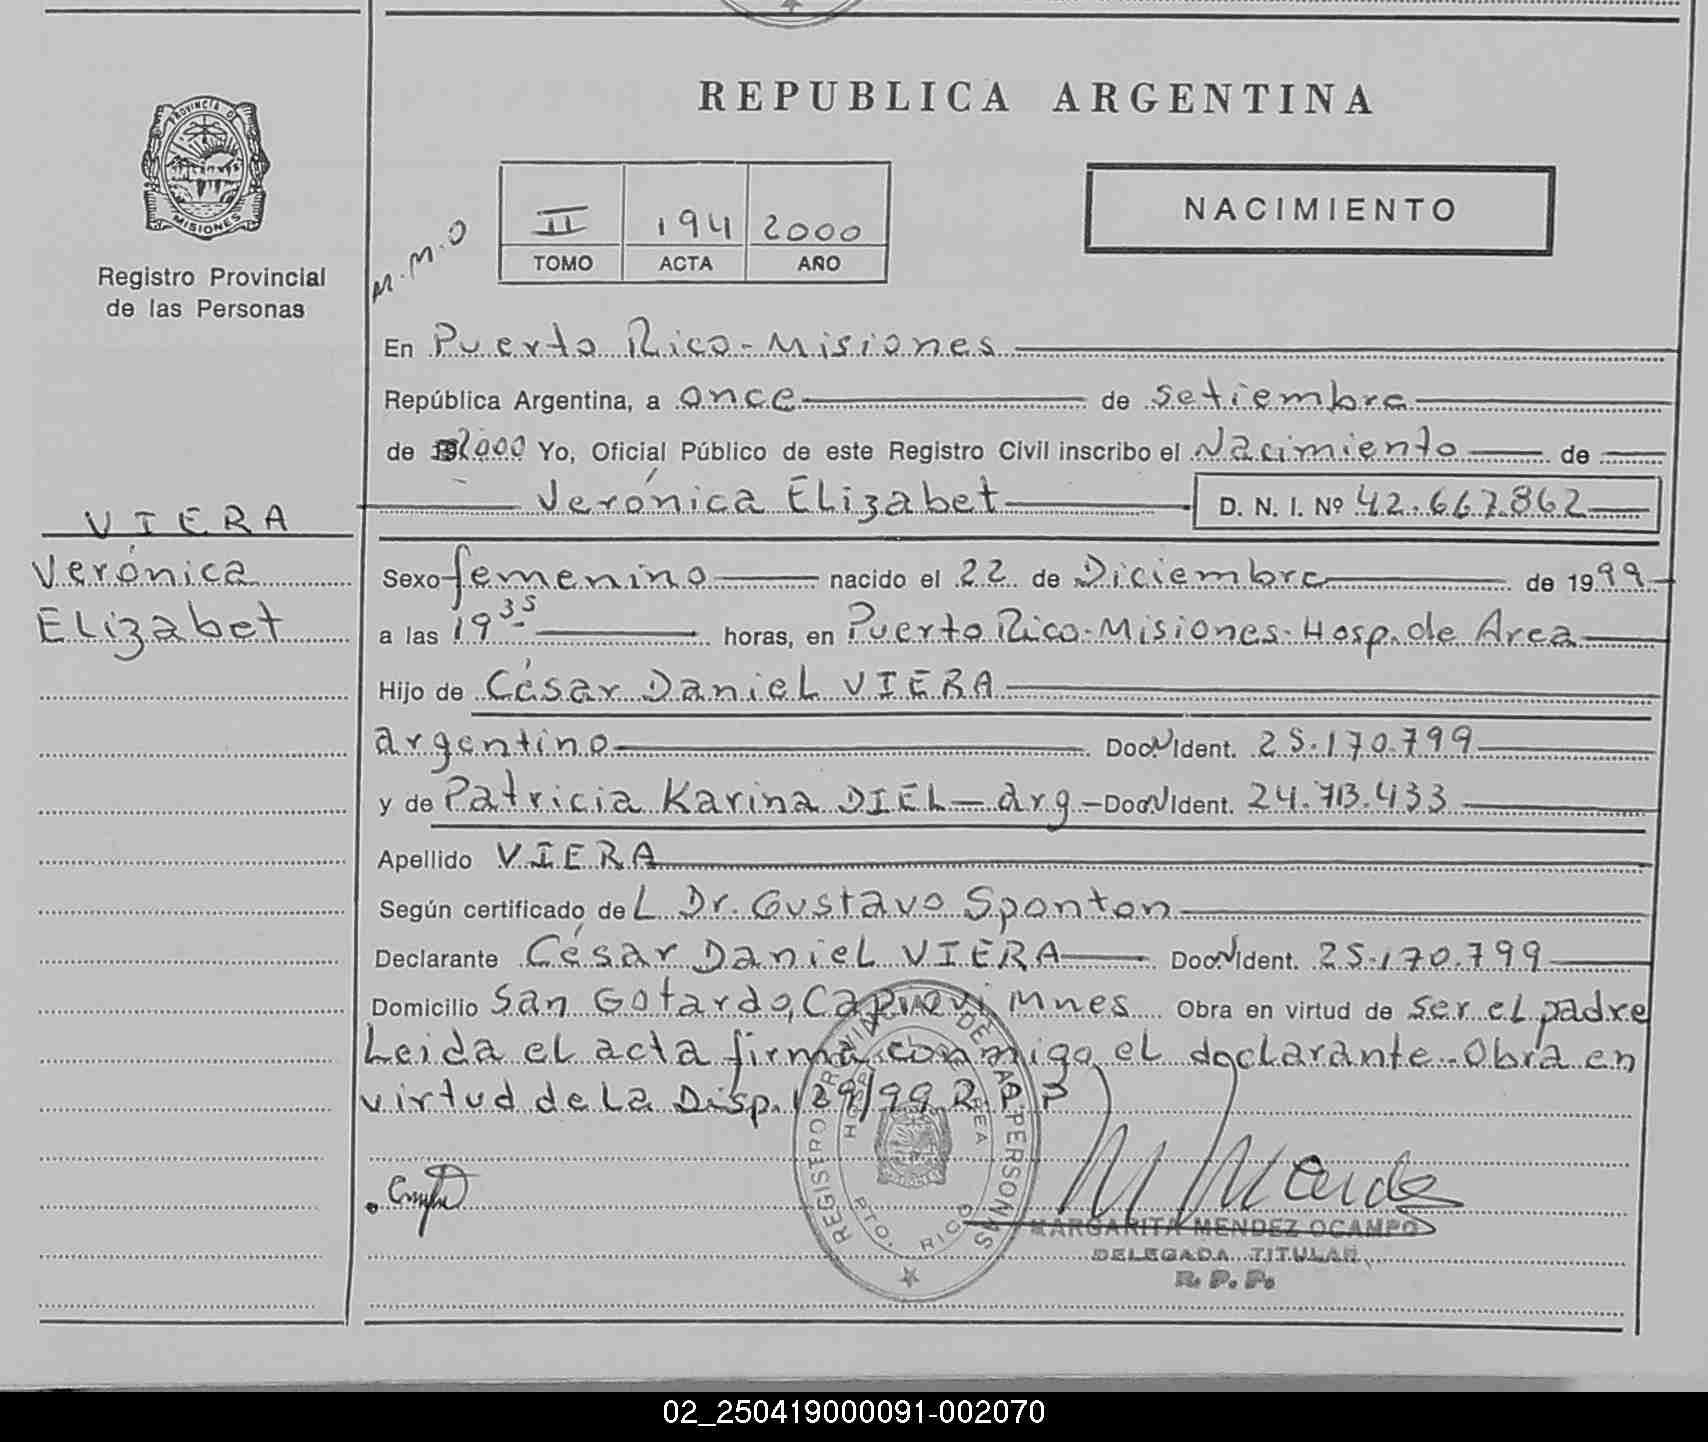 REPUBLICA ARGENTINA
PROVINCIA DE
MISIONES
Registro Provincial
de las Personas
II 194 2000
TOMO ACTA AÑO
NACIMIENTO
M.M.O
En Puerto Rico - Misiones
República Argentina, a once de setiembre
de 2000 Yo, Oficial Público de este Registro Civil inscribo el Nacimiento de
Verónica Elizabet D. N. I. Nº 42.667.862
VIERA
Verónica
Elizabet
Sexo femenino nacido el 22 de Diciembre de 1999
a las 19 35 horas, en Puerto Rico - Misiones - Hosp. de Area
Hijo de César Daniel VIERA
argentino Doc N Ident. 25.170.799
y de Patricia Karina DIEL - arg - Doc N Ident. 24.713.433
Apellido VIERA
Según certificado del Dr. Gustavo Sponton
Declarante César Daniel VIERA Doc N Ident. 25.170.799
Domicilio San Gotardo, Capiovi Mnes Obra en virtud de ser el padre
Leida el acta firma conmigo el declarante - Obra en
virtud de la Disp. 129/99 R.P.P
REGISTRO PROVINCIAL DE LAS PERSONAS
PTO. RICO
MARGARITA MENDEZ OCAMPO
DELEGADA TITULAR
R. P. P.
02_250419000091-002070